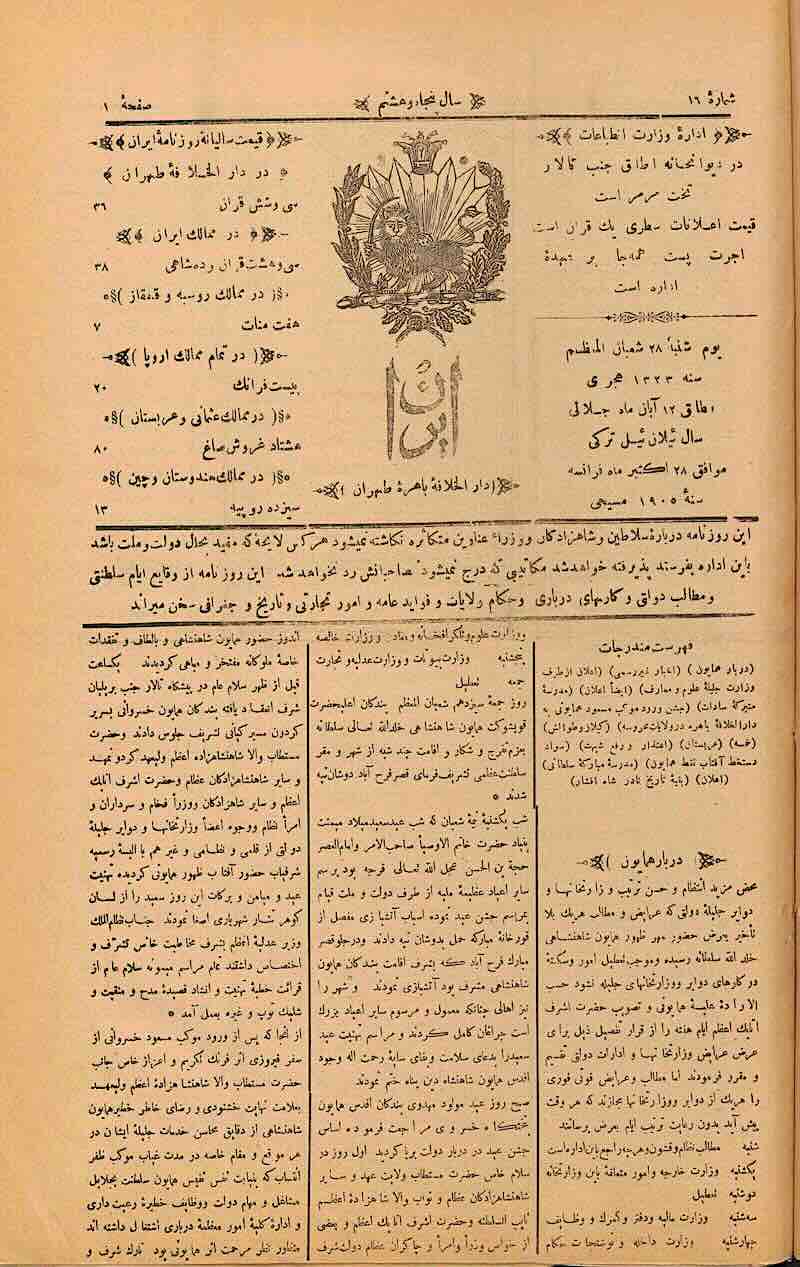 شمارهٔ ۱۶
سال پنجاه و هشتم
صفحهٔ ۱
ادارهٔ وزارت انطباعات
در دیوانخانه اطاق جنب تالار
تخت مرمر است
قیمت اعلانات سطری یك قران است
اجرت پست همه‌جا بر عهدهٔ
اداره است
یوم شنبهٔ ۲۸ شعبان المعظم
سنه ۱۳۲۳ هجری
مطابق ۱۲ آبان ماه جلالی
سال ئیلان ئیل ترکی
موافق ۲۸ اکتبر ماه فرانسه
سنهٔ ۱۹۰۵ مسیحی
ایران
(دار الخلافهٔ باهرهٔ طهران)
قیمت سالیانهٔ روزنامهٔ ایران
در دار الخلافهٔ طهران
سی و شش قران ۳۶
در ممالك ایران
سی و هشت قران و ده شاهی ۳۸
(در ممالك روسیه و قفقاز)
هفت منات ۷
(در تمام ممالك اروپا)
بیست فرانك ۲۰
(در ممالك عثمانی و عربستان)
هشتاد غروش صاغ ۸۰
(در ممالك هندوستان و چین)
سیزده روپیه ۱۳
این روزنامه دربارهٔ سلاطین و شاهزادگان و وزراء عناوین متکاثره نگاشته نمیشود هر کس لایحهٔ که مفید بحال دولت و ملت باشد
باین اداره بفرستد پذیرفته خواهد شد مکاتیبی که درج نمیشود بصاحبانش رد نخواهد شد این روزنامه از وقایع ایام سلطنتی
و مطالب دولتی و کارهای درباری و حکام ولایات و فواید عامه و امور تجارتی و تاریخ و جغرافی سخن میراند
فهرست مندرجات
(دربار همایون) (اخبار غیر رسمی) (اعلان از طرف
وزارت جلیلهٔ علوم و معارف) (ایضاً اعلان) (مدرسهٔ
متبرکهٔ سادات) (جشن ورود موکب مسعود همایونی به
دارالخلافهٔ باهره و ولایات محروسه) (گیلان و طوالش)
(خمسه) (عربستان) (اعتذار و رفع شبهت) (سواد
دستخط آفتاب نقط همایون) (مدرسهٔ مبارکهٔ سلطانی)
(اعلان) (بقیهٔ تاریخ نادر شاه افشار)
دربار همایون
محض مزید انتظام و حسن ترتیب وزارتخانها و
دوایر جلیلهٔ دولتی که عرایض و مطالب هر یك بلا
تأخیر بعرض حضور مهر ظهور همایون شاهنشاهی
خلد الله سلطانه رسیده و موجب تعطیل امور و سکتهٔ
در کارهای دوایر و وزارتخانهای جلیله نشود حسب
الارادهٔ علیهٔ همایونی و تصویب حضرت اشرف
اتابك اعظم ایام هفته را از قرار تفصیل ذیل برای
عرض عرایض وزارتخانها و ادارات دولتی تقسیم
و مقرر فرمودند اما مطالب و عرایض فوتی فوری
را هر یك از دوایر و وزارتخانها مجازند که هر وقت
پیش آید بدون رعایت ترتیب ایام بعرض برسانند
شنبه مطالب نظام و قشون و هرچه راجع باین اداره است
یکشنبه وزارت خارجه و امور متعلقهٔ باین وزارتخانه
دوشنبه تعطیل
سه‌شنبه وزارت مالیه و دفتر و گمرك و وظایف
چهارشنبه وزارت داخله و نوشتجات حکام
وزارت علوم و تلگرافخانه و معادن و وزارت خالصه
پنجشنبه وزارت بیوتات و وزارت عدلیه و تجارت
جمعه تعطیل
روز جمعه سیزدهم شعبان المعظم بندگان اعلیحضرت
قویشوکت همایون شاهنشاهی خلدالله تعالی سلطانه
بعزم تفرج و شکار و اقامت چند شبه از شهر و مقر
سلطنت عظمی تشریف‌فرمای قصر فرح آباد دوشان تپه
شدند *
شب یکشنبهٔ نیمهٔ شعبان که شب عید سعید میلاد میمنت
بنیاد حضرت خاتم الاوصیاء صاحب الامر و امام العصر
حجة بن الحسن عجل الله تعالی فرجه بود برسم
سایر اعیاد عظیمهٔ ملیه از طرف دولت و ملت قیام
بمراسم جشن عید نموده اسباب آتشبازی مفصل از
قورخانهٔ مبارکه حمل بدوشان تپه دادند و در جلو قصر
مبارك فرح آباد که بشرف اقامت بندگان همایون
شاهنشاهی مشرف بود آتشبازی نمودند و شهر را
نیز اهالی چنانکه معمول و مرسوم سایر اعیاد بزرك
است چراغان کامل کردند و مراسم تهنیت عید
سعید را بدعای سلامت وبقای سایهٔ رحمت اله وجود
اقدس همایون شاهنشاه دین پناه ختم نمودند
صبح روز عید مولود مهدوی بندگان اقدس همایون
بتختگاه خسروی مراجعت فرموده اساس
جشن عید در دربار دولت برپا گردید اول روز در
سلام خاص حضرت مستطاب ولایت عهد و سایر
شاهنشاهزادگان عظام و نواب والا شاهزادهٔ اعظم
نایب السلطنه و حضرت اشرف اتابك اعظم و بعضی
از خواص وزرأ و امرأ و چاکران عظام دولت شرف
اندوز حضور همایون شاهنشاهی و بالطاف و تفقدات
خاصهٔ ملوکانه مفتخر و مباهی گردیدند یکساعت
قبل از ظهر سلام عام در پیشگاه تالار جنب برلیان
شرف انعقاد یافته بندگان همایون خسروانی بسریر
گردون مسیر کیانی تشریف جلوس دادند و حضرت
مستطاب والا شاهنشاهزاده اعظم ولیعهد گردون مهد
و سایر شاهنشاهزادگان عظام و حضرت اشرف اتابك
اعظم و سایر شاهزادگان و وزرأ فخام و سرداران و
امرأ نظام و وجوه اعضأ وزارتخانها و دوایر جلیلهٔ
دولتی از قلمی و نظامی و غیر هم با البسهٔ رسمیه
شرفیاب حضور آفتاب ظهور همایونی گردیده تهنیت
عید و میامن و برکات این روز سعید را از لسان
گوهر نثار شهریاری اصغا نمودند جناب نظام‌الملك
وزیر عدلیهٔ اعظم بشرف مخاطبت خاص تشرف و
اختصاص داشتند تمام مراسم میمونه سلام عام از
قرائت خطبهٔ تهنیت و انشاد قصیدهٔ مدح و منقبت و
شلیك توپ و غیره بعمل آمد *
از آنجا که پس از ورود موکب مسعود خسروانی از
سفر فیروزی اثر فرنك تکریم و اعزاز خاص جانب
حضرت مستطاب والا شاهنشاهزادهٔ اعظم ولیعهد
بعلامت نهایت خشنودی و رضای خاطر خطیر همایون
شاهنشاهی از دقایق محاسن خدمات جلیلهٔ ایشان در
هر موقع و مقام خاصه در مدت غیاب موکب ظفر
انتساب که بنیابت نفس نفیس همایون سلطنت بجلایل
مشاغل و مهام دولت و وظایف خطیرهٔ رعیت داری
و ادارهٔ کلیهٔ امور معظمهٔ درباری اشتغال داشته اند
منظور نظر مرحمت اثر همایونی بود تارك شرف و